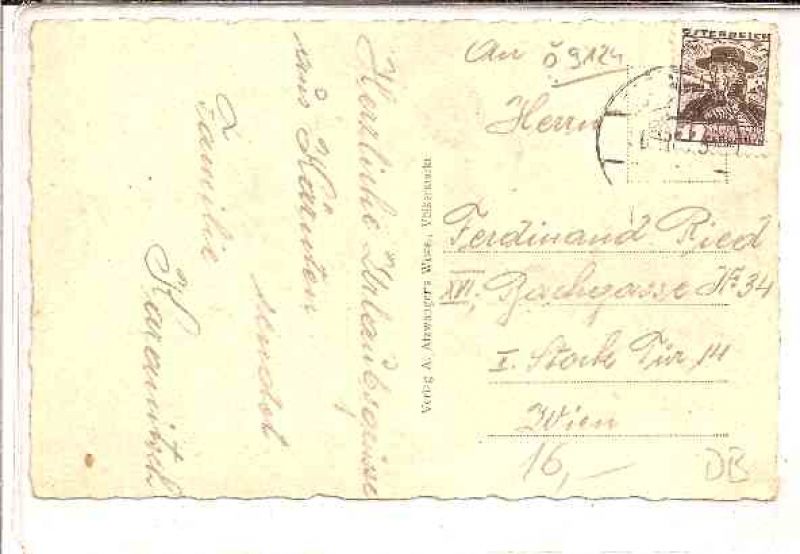 Herzliche Urlaubsgrüsse
aus Kärnten
sendet
Familie
Karanitsch
Verlag A. Atzwanger's Wwe., Völkermarkt
An Ö 9124
Herrn
Ferdinand Ried
XVI. Bachgasse Nr 34
I. Stock Tür 14
Wien
16,—
DB
ÖSTERREICH